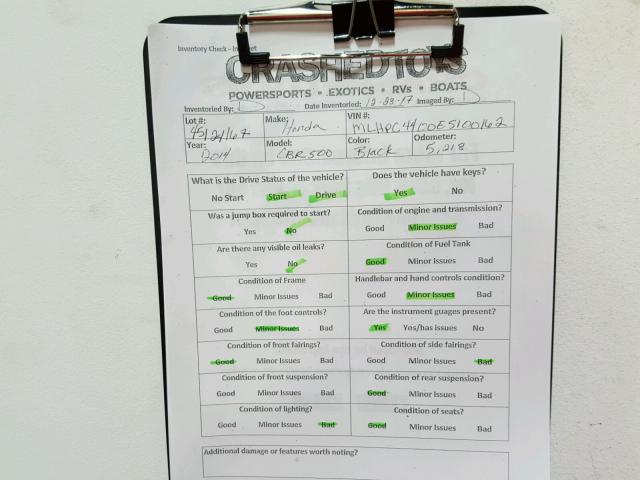 Inventory Check - In
CRASHEDTOYS
POWERSPORTS • EXOTICS • RVs • BOATS
Inventoried By: D Date Inventoried: 12-23-17 Imaged By: D
Lot #: Make: VIN #:
45124167 Honda MLHPC4400E5100162
Year: Model: Color: Odometer:
2014 CBR500 Black 5,218
What is the Drive Status of the vehicle? Does the vehicle have keys?
No Start Start Drive Yes No
Was a jump box required to start? Condition of engine and transmission?
Yes No Good Minor Issues Bad
Are there any visible oil leaks? Condition of Fuel Tank
Yes No Good Minor Issues Bad
Condition of Frame Handlebar and hand controls condition?
Good Minor Issues Bad Good Minor Issues Bad
Condition of the foot controls? Are the instrument guages present?
Good Minor Issues Bad Yes Yes/has issues No
Condition of front fairings? Condition of side fairings?
Good Minor Issues Bad Good Minor Issues Bad
Condition of front suspension? Condition of rear suspension?
Good Minor Issues Bad Good Minor Issues Bad
Condition of lighting? Condition of seats?
Good Minor Issues Bad Good Minor Issues Bad
Additional damage or features worth noting?